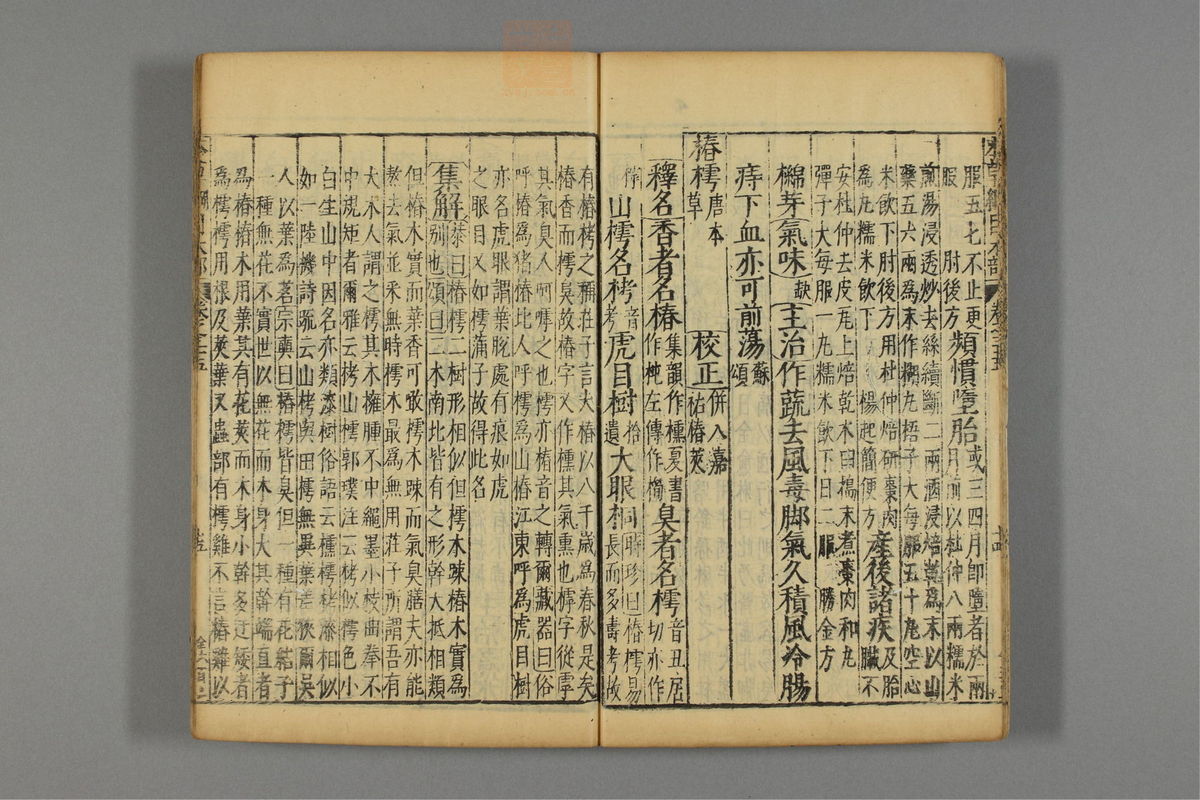 本草綱目木部 卷之三十五
服五七不止更
服 肘後方
頻慣墮胎
或三四月即墮者於兩
月前以杜仲八兩糯米
煎湯浸透炒去絲續斷二兩酒浸焙乾爲末以山
藥五六兩爲末作糊丸梧子大每服五十丸空心
米飲下肘後方用杜仲焙研棗肉
爲丸糯米飲下 楊起簡便方
產後諸疾
及胎
臟不
安杜仲去皮瓦上焙乾木臼搗末煮棗肉和丸
彈子大每服一丸糯米飲下日二服 勝金方
檰芽氣味缺主治作蔬去風毒脚氣久積風冷腸
痔下血亦可煎湯蘇頌
椿樗唐本草 校正併入嘉祐椿莢
釋名香者名椿
集韻作櫄夏書
作杶左傳作橁
臭者名樗
音丑居
切亦作
山樗名栲音考虎目樹拾遺大眼桐
時珍曰椿樗易
長而多壽考故
有椿栲之稱莊子言大椿以八千歲爲春秋是矣
椿香而樗臭故椿字又作櫄其氣熏也樗字從虖
其氣臭人呵嘑之也樗亦椿音之轉爾藏器曰俗
呼椿爲猪椿北人呼樗爲山椿江東呼爲虎目樹
亦名虎眼謂葉脫處有痕如虎
之眼目又如樗蒲子故得此名
集解
恭曰椿樗二樹形相似但樗木踈椿木實爲
別也頌曰二木南北皆有之形幹大抵相類
但椿木實而葉香可啖樗木踈而氣臭膳夫亦能
熬去氣並采無時樗木最爲無用莊子所謂吾有
大木人謂之樗其木擁腫不中繩墨小枝曲拳不
中規矩者爾雅云栲山樗郭璞注云栲似樗色小
白生山中因名亦類漆樹俗語云櫄樗栲漆相似
如一陸機詩疏云山栲與田樗無異葉差狹爾吳
人以葉爲茗宗奭曰椿樗皆臭但一種有花結子
一種無花不實世以無花而木身大其幹端直者
爲椿椿木用葉其有花莢而木身小幹多迂矮者
爲樗樗用根及莢葉又蟲部有樗雞不言椿雞以